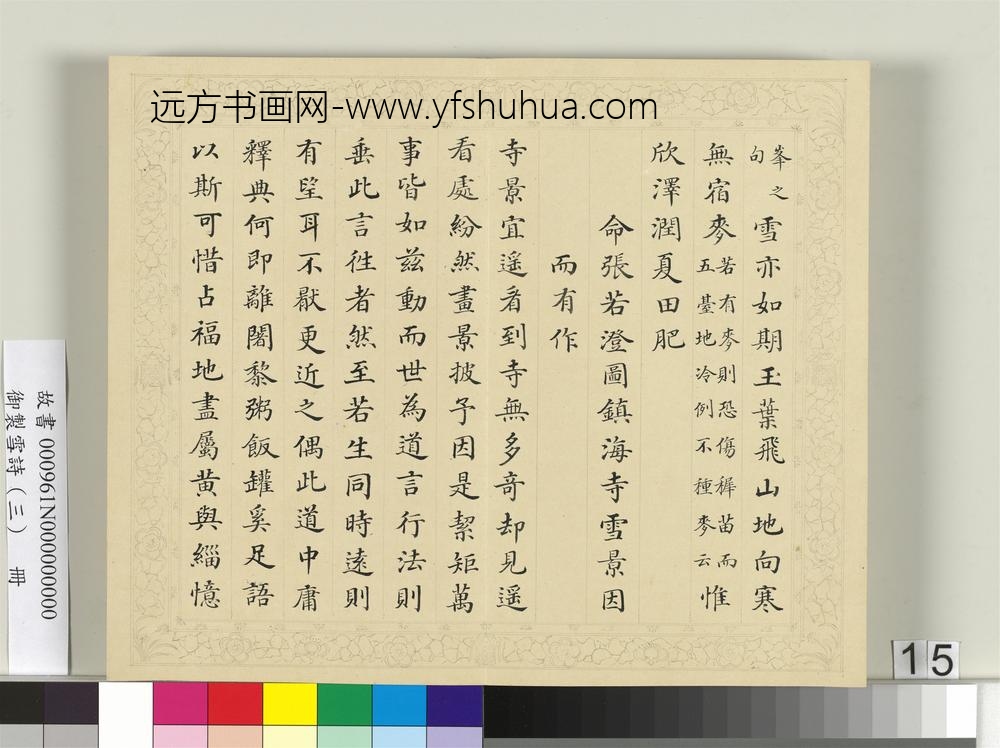 远方书画网-www.yfshuhua.com
峯之
句
雪亦如期玉葉飛山地向寒
無宿麥
若有麥則恐傷穉苗而
五臺地冷例不種麥云
惟
欣澤潤夏田肥
命張若澄圖鎮海寺雪景因
而有作
寺景宜遥看到寺無多竒却見遥
看處紛然畫景披予因是絜矩萬
事皆如兹動而世為道言行法則
垂此言徃者然至若生同時逺則
有望耳不厭更近之偶此道中庸
釋典何即離闍黎粥飯鑵奚足語
以斯可惜占福地盡屬黄與緇憶
故書 000961N000000000
御製雪詩（三） 冊
15